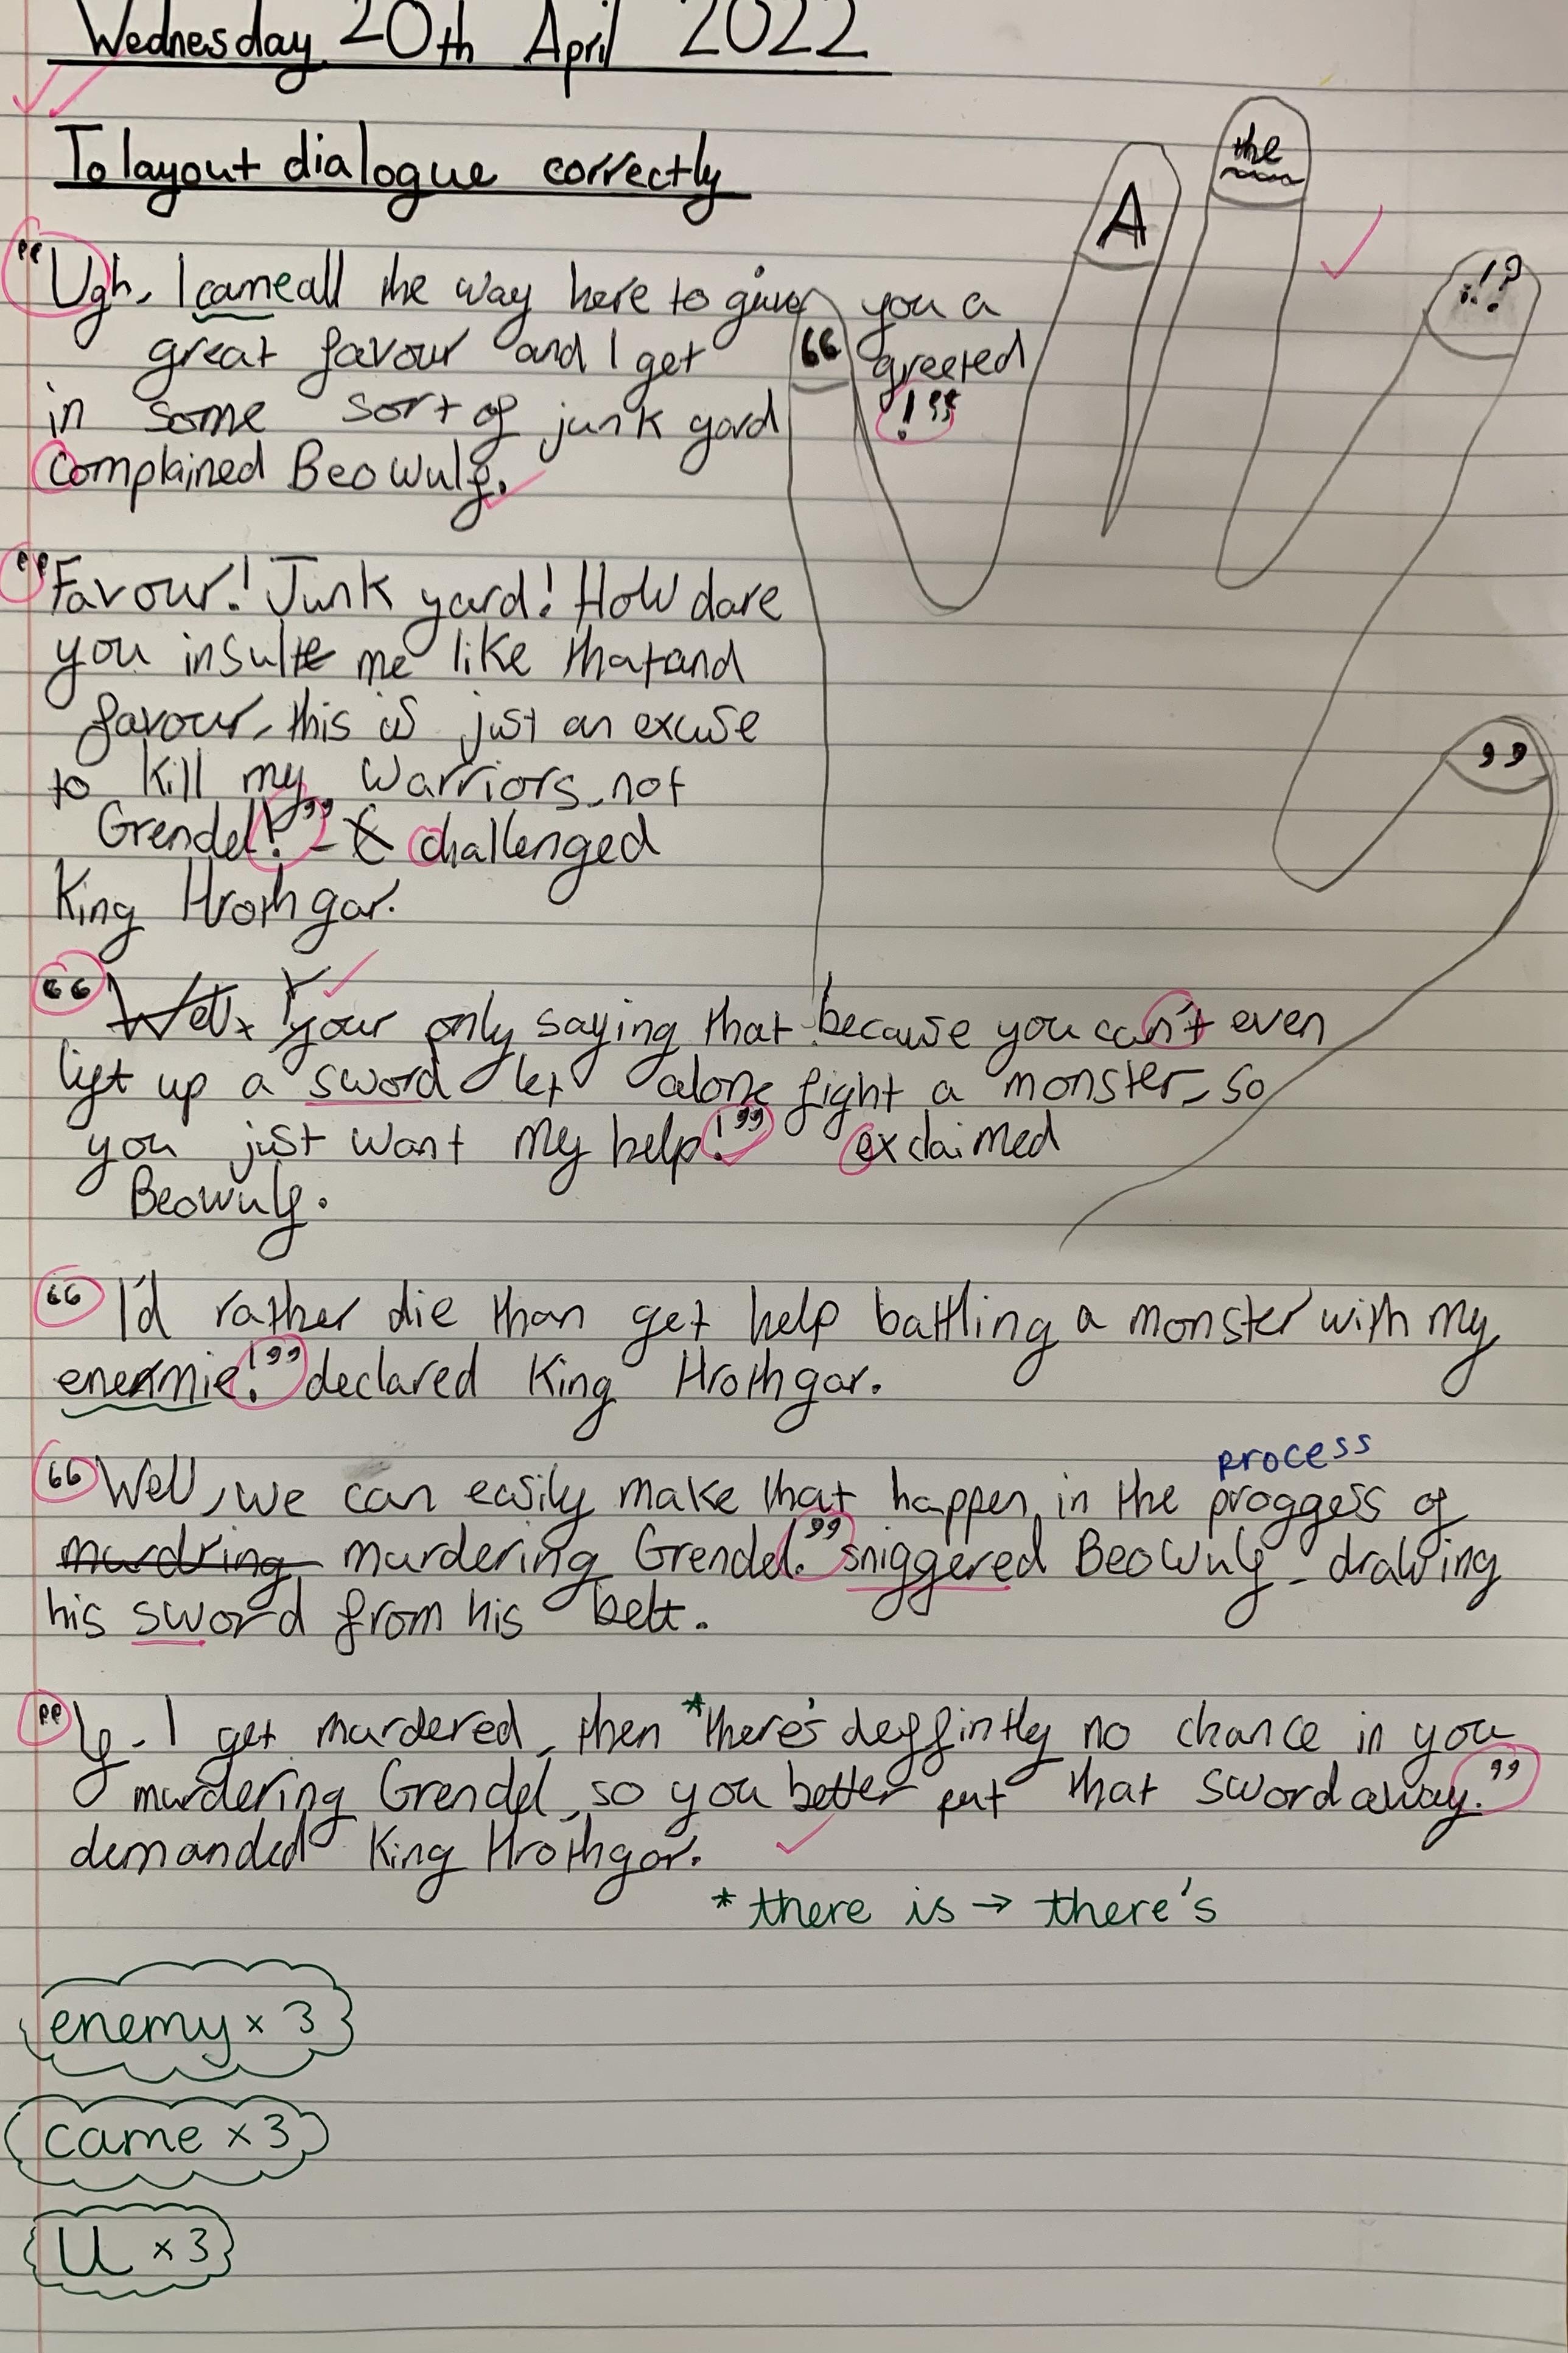 Wednesday 20th April 2022
To layout dialogue correctly
A
the
.!?
"Ugh, I came all the way here to give you a
great favour and I get “ greeted
in some sort of junk yard !"
complained Beowulf.
"Favour! Junk yard! How dare
you insulte me like that and
favour, this is just an excuse
to kill my warriors, not
Grendel!" - C challenged
King Hrothgar.
”
"Well, Y your only saying that because you can't even
lift up a sword let alone fight a monster, so
you just want my help!" exclaimed
Beowulf.
"I'd rather die than get help battling a monster with my
enemmie!" declared King Hrothgar.
process
"Well, we can easily make that happen in the proggess of
murdring murdering Grendel." sniggered Beowulf, drawing
his sword from his belt.
"If I get murdered, then *there's deffintly no chance in you
murdering Grendel, so you better put that sword away."
demanded King Hrothgar.
*there is → there's
enemy x 3
came x 3
U x 3